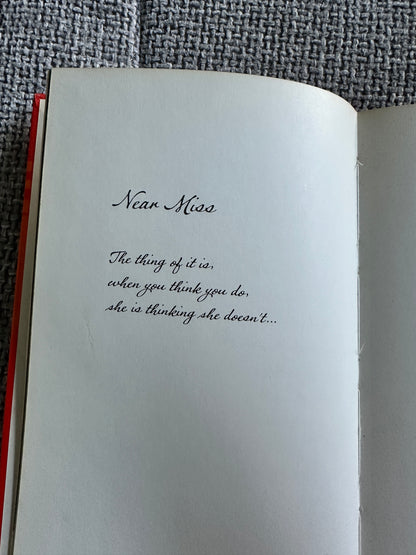 Near Miss
The thing of it is,
when you think you do,
she is thinking she doesn't...